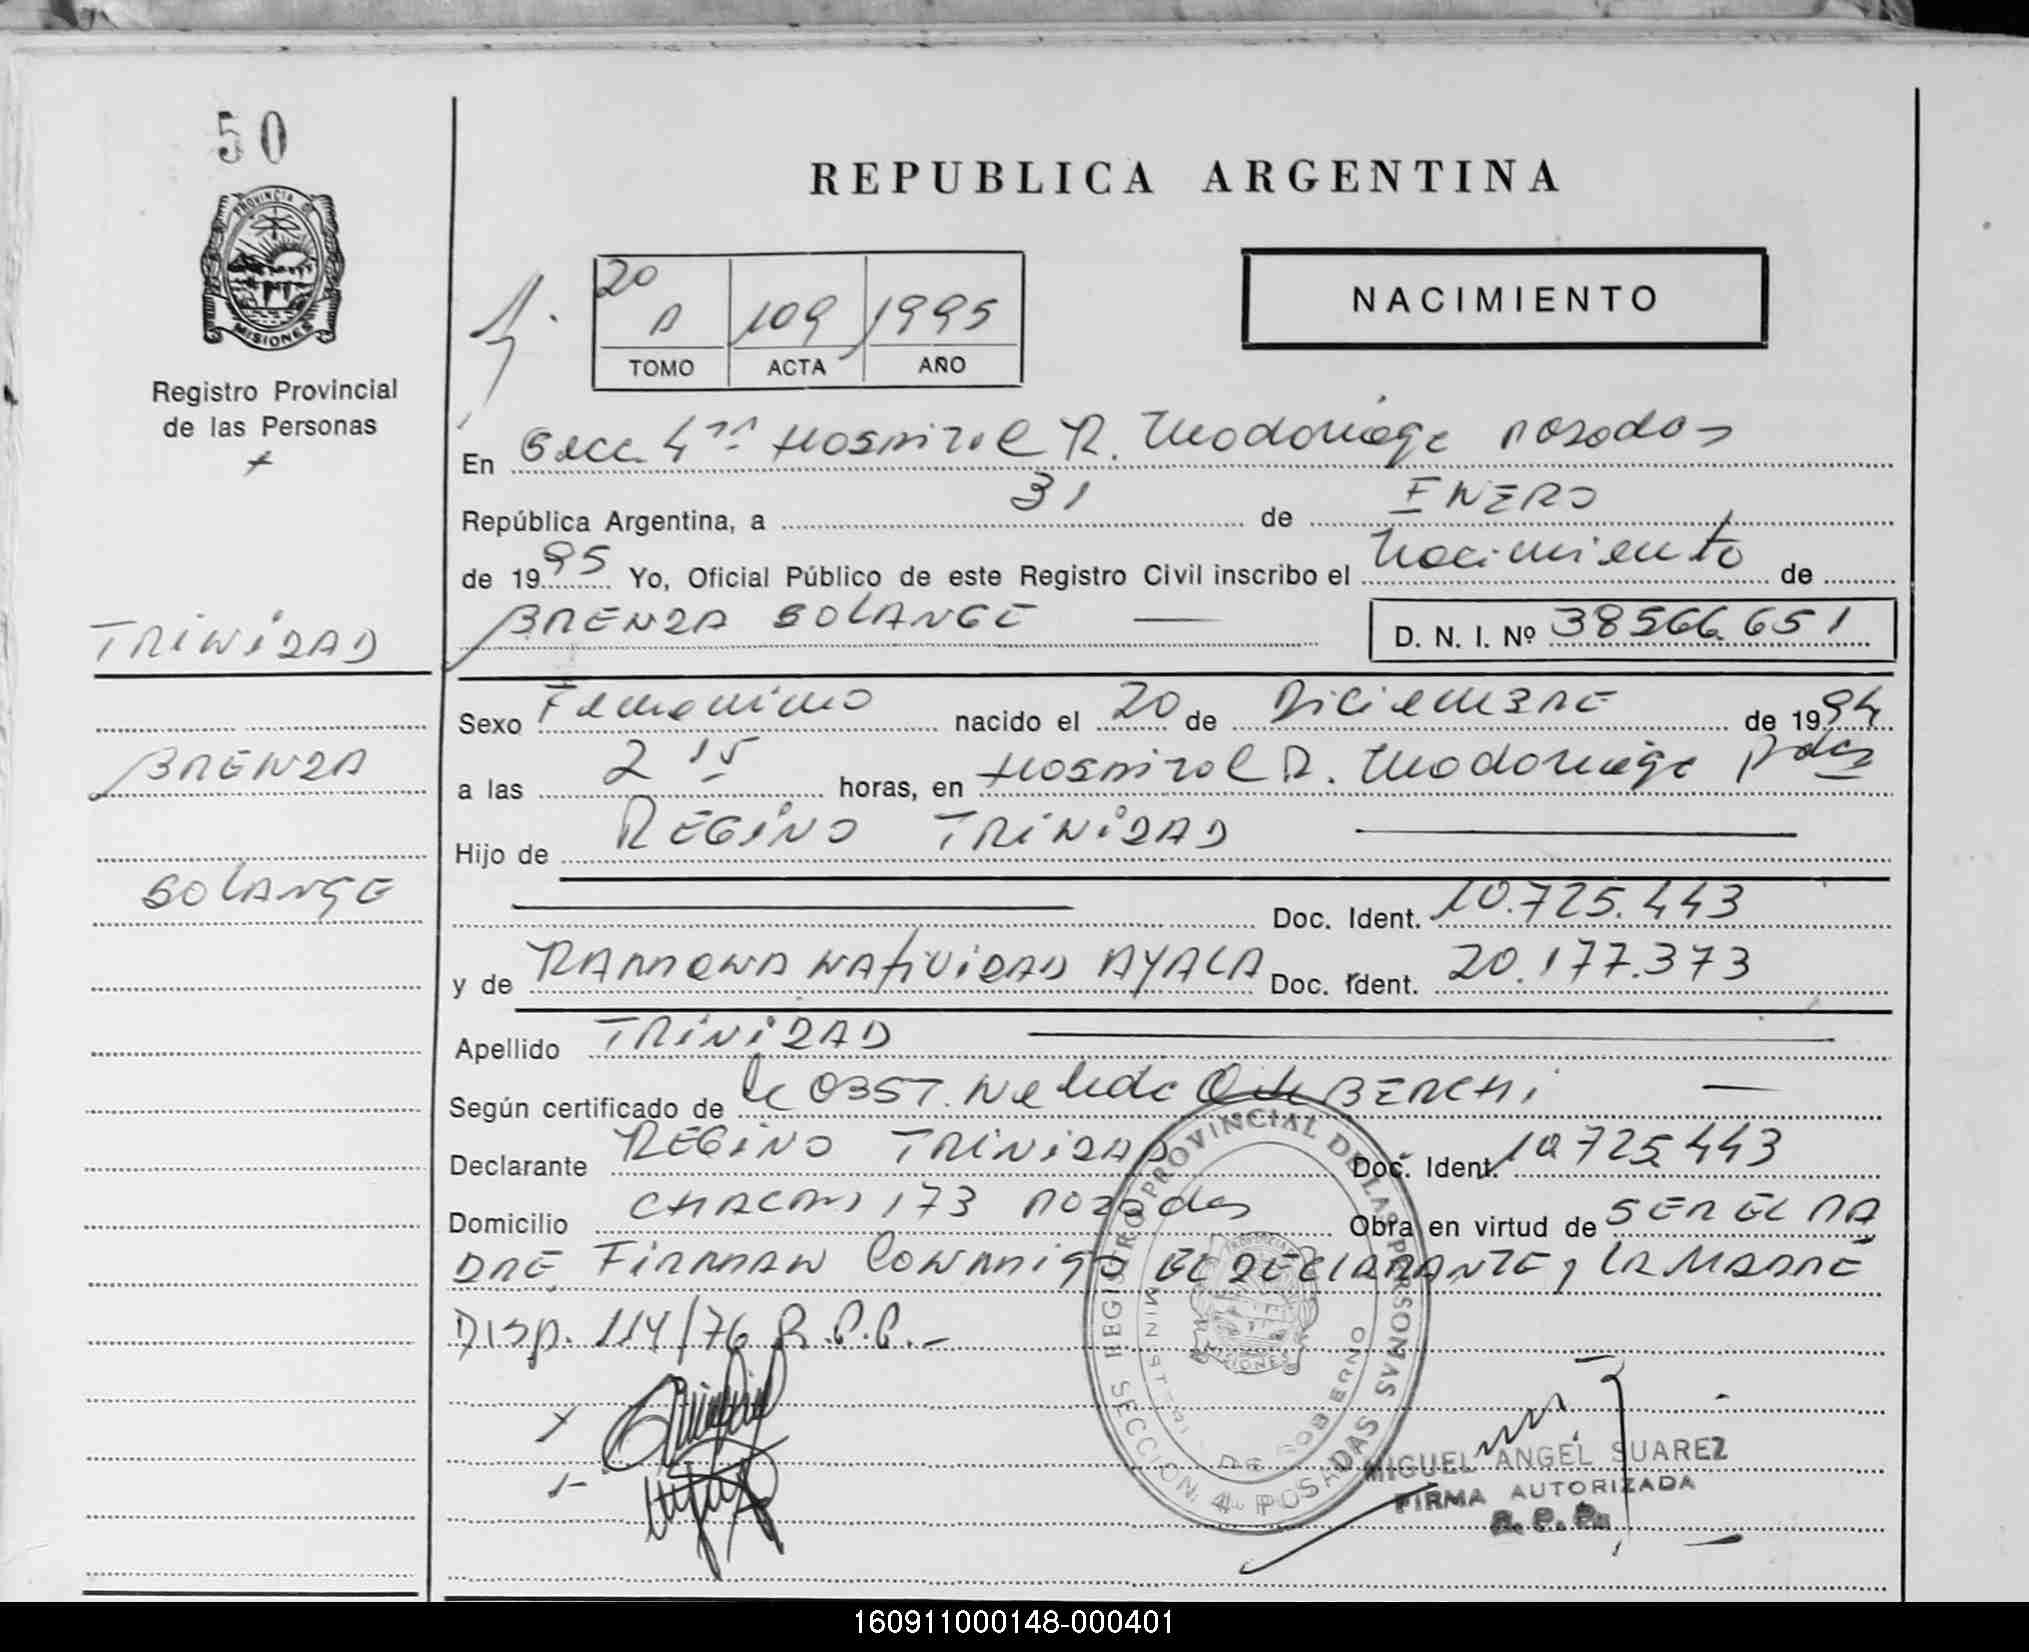 50
PROVINCIA DE
MISIONES
Registro Provincial
de las Personas
TRINIDAD
BRENDA
SOLANGE
REPUBLICA ARGENTINA
20
A 109 1995
TOMO ACTA AÑO
NACIMIENTO
En Secc. 4ta Hospital R. Madariaga Posadas
República Argentina, a 31 de ENERO
de 1995 Yo, Oficial Público de este Registro Civil inscribo el Nacimiento de
BRENDA SOLANGE
D. N. I. Nº 38566.651
Sexo Femenino nacido el 20 de Diciembre de 1994
a las 2 15 horas, en Hospital R. Madariaga Pdas
Hijo de REGINO TRINIDAD
Doc. Ident. 10.725.443
y de RAMONA NATIVIDAD AYALA Doc. Ident. 20.177.373
Apellido TRINIDAD
Según certificado de la OBST. Nelida BERCHI
Declarante REGINO TRINIDAD Doc. Ident. 10.725.443
Domicilio 173 Posadas Obra en virtud de SER EL PA
DRE FIRMAN Conmigo EL DECLARANTE y LA MADRE
Disp. 114/76 R.P.P.-
REGISTRO PROVINCIAL DE LAS PERSONAS
MINISTERIO DE GOBIERNO
SECCION 4ta POSADAS
MIGUEL ANGEL SUAREZ
FIRMA AUTORIZADA
160911000148-000401